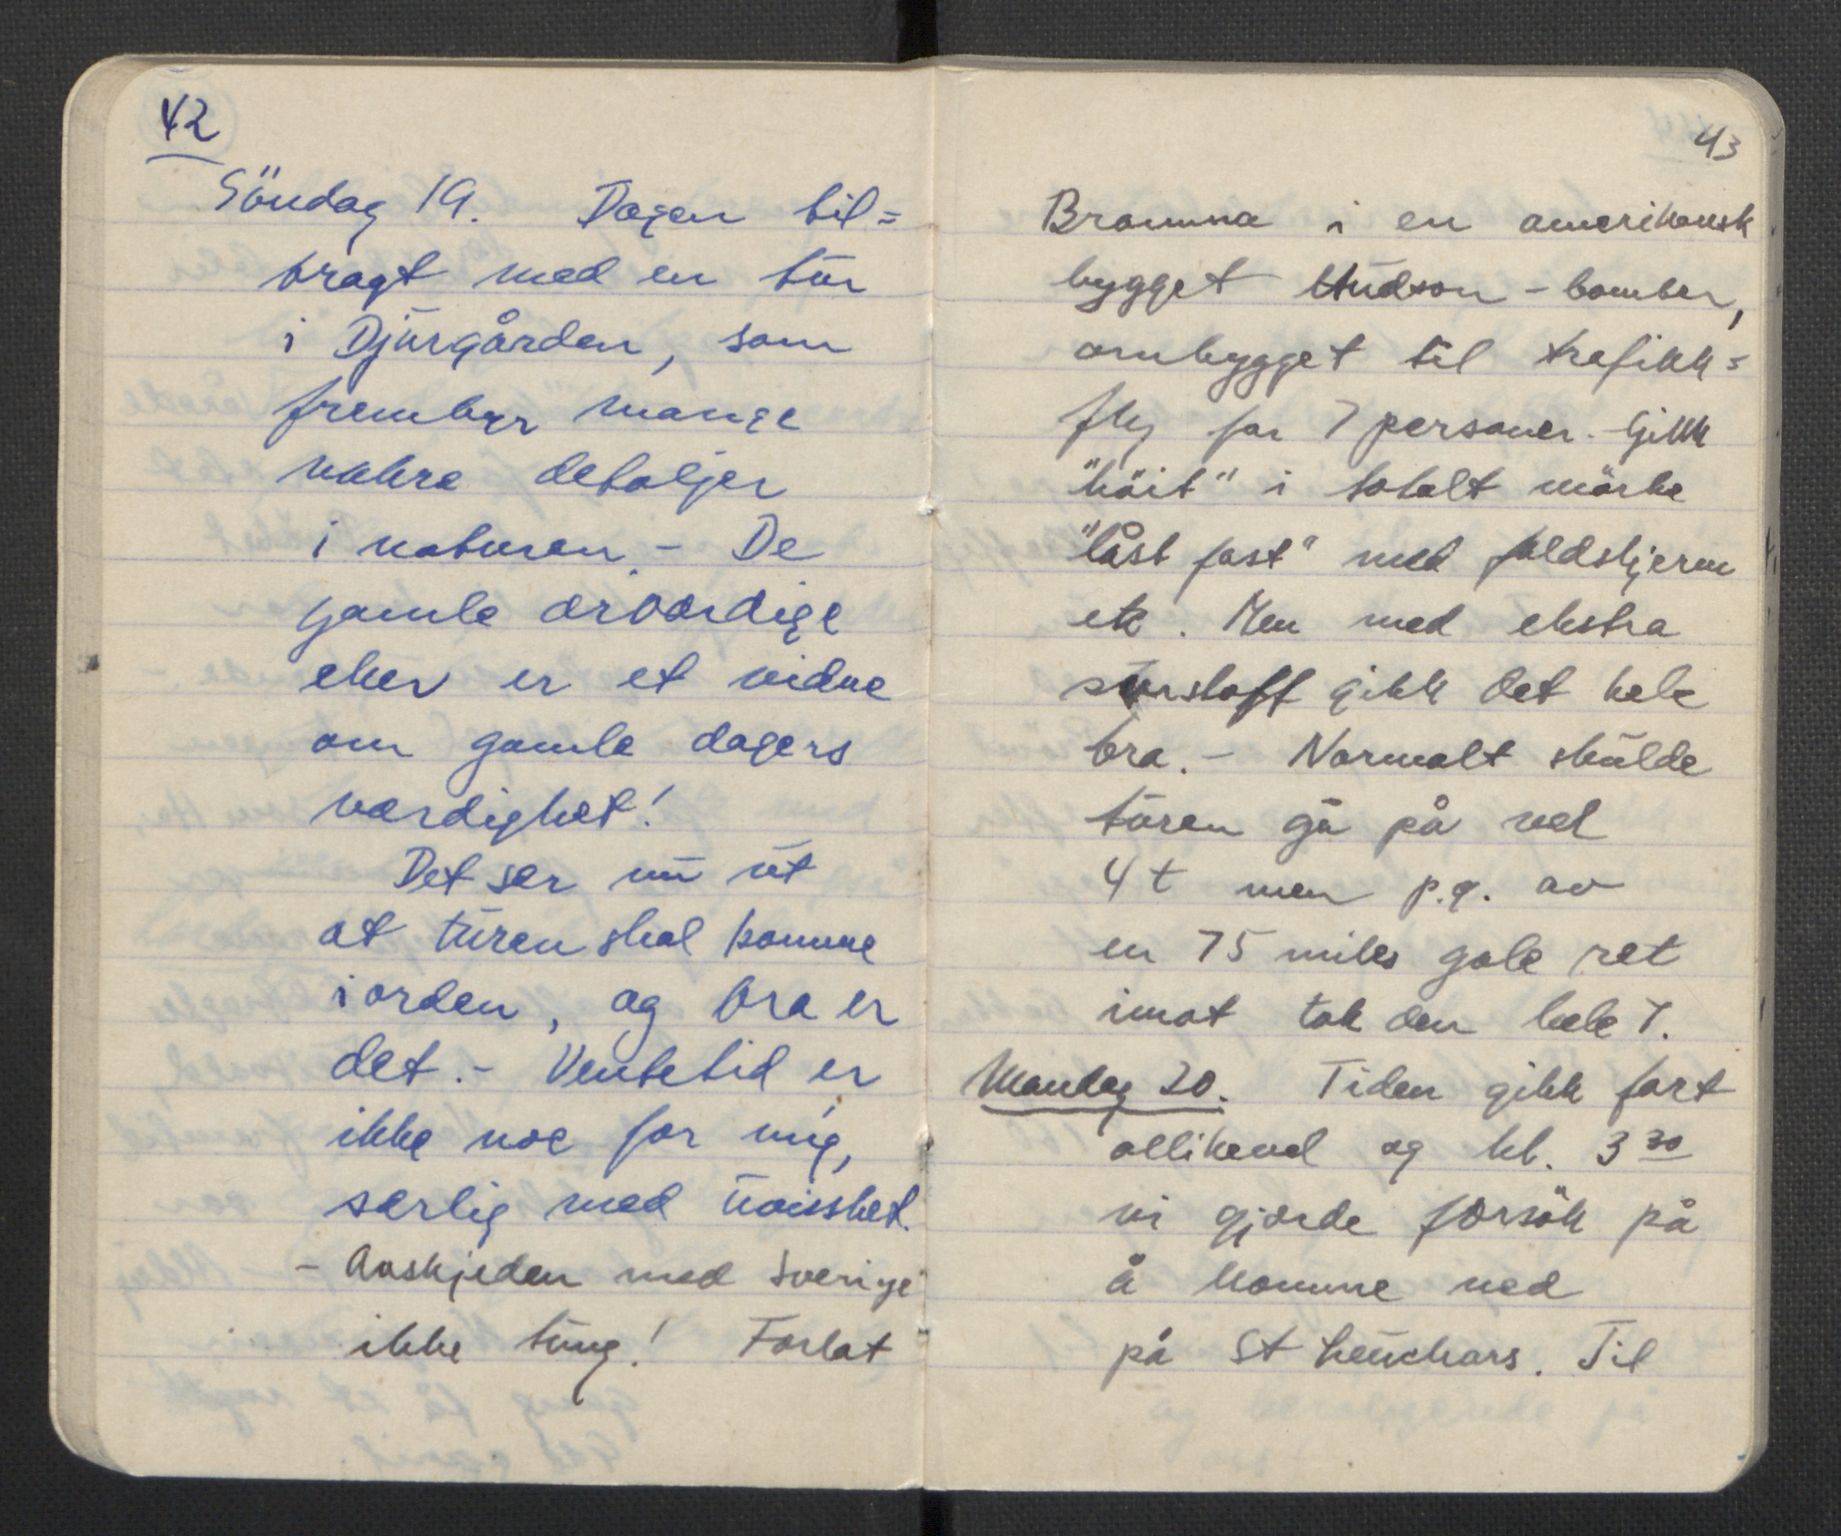 42
Söndag 19. Dagen til=
bragt med en tur
i Djurgården, som
frembyr mange
vakre detaljer
i naturen. - De
gamle ærværdige
eker er et vidne
om gamle dagers
værdighet!
Det ser nu ut
at turen skal komme
i orden, og bra er
det. - Ventetid er
ikke noe for mig,
særlig med uvisshet.
- Avskjeden med Sverige
ikke tung! Forlat
43
Bromma i en amerikansk
bygget Hudson - bomber,
ombygget til trafikk=
fly for 7 personer. Gikk
"höit" i totalt mörke
"låst fast" med faldskjerm
etc. Men med ekstra
surstoff gikk det hele
bra. - Normalt skulde
turen gå på vel
4 t men p.g. av
en 75 miles gale ret
imot tok den hele 7.
Mandag 20. Tiden gikk fort
allikevel og kl. 3 30
vi gjorde forsök på
å komme ned
på St Leuchars. Til